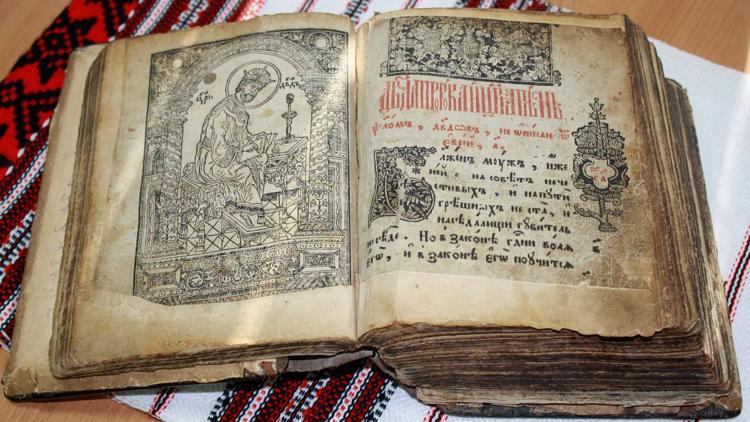 дв҃дъ
ѱаломъ, дв҃довъ, не ѡписан ѿ
еврей, а҃,
Блаженъ моужъ, иже
на совѣтъ нече
стивыхъ, и напоути
грѣшныхъ не ста, и
насѣдалищи гꙋбитель
не сѣде. Но в законѣ гдⷭ҇ни волѧ
егѡ, и в законѣ егѡ поучитсѧ